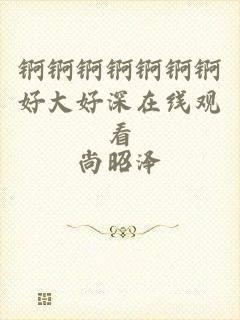 锕锕锕锕锕锕锕
好大好深在线观
看
尚昭泽